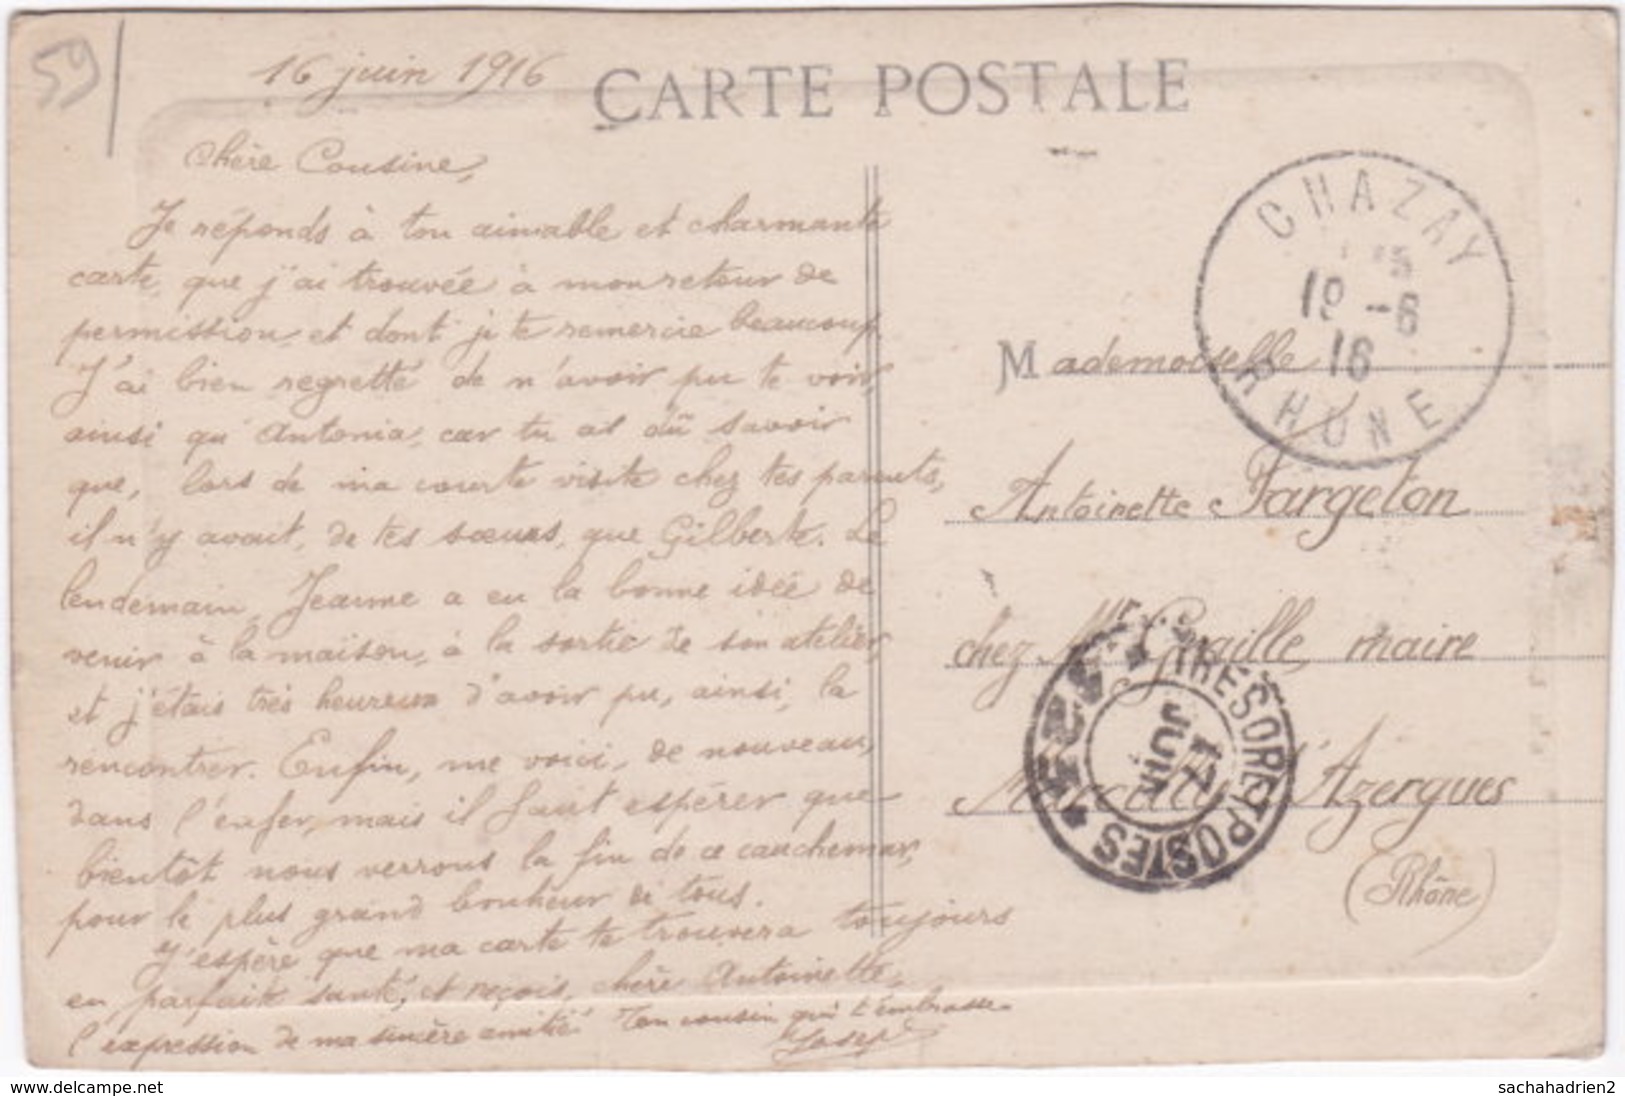 59
16 juin 1916
CARTE POSTALE
Chère Cousine,
Je réponds à ton aimable et charmante
carte, que j'ai trouvée à mon retour de
permission, et dont je te remercie beaucoup.
J'ai bien regretté de n'avoir pu te voir,
ainsi qu'Antonia, car tu as dû savoir
que, lors de ma courte visite chez tes parents,
il n'y avait, de tes sœurs, que Gilberte. Le
lendemain, Jeanne a eu la bonne idée de
venir à la maison, à la sortie de son atelier,
et j'étais très heureux d'avoir pu, ainsi, la
rencontrer. Enfin, me voici, de nouveau,
dans l'enfer, mais il faut espérer que
bientôt nous verrons la fin de ce cauchemar,
pour le plus grand bonheur de tous.
J'espère que ma carte te trouvera toujours
en parfaite santé, et reçois, chère Antoinette,
l'expression de ma sincère amitié. Ton cousin qui t'embrasse
Joseph
CHAZAY
19 -6
16
RHONE
Mademoiselle
Antoinette Fargeton
chez Mr maire
d'Azergues
(Rhône)
TRESOR ET POSTES
17
JUIN
www.delcampe.net
sachahadrien2